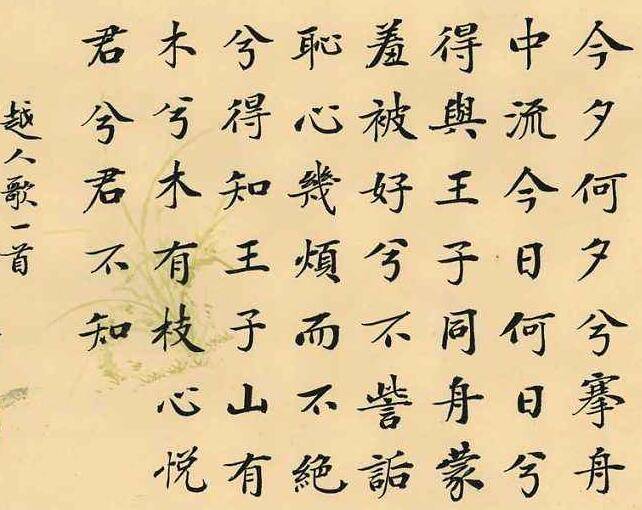 今夕何夕兮搴舟
中流今日何日兮
得與王子同舟蒙
羞被好兮不訾詬
恥心幾煩而不絶
兮得知王子山有
木兮木有枝心悦
君兮君不知
越人歌一首